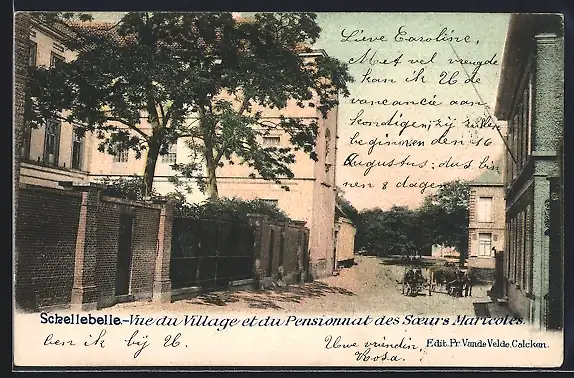 Lieve Caroline,
Met vel vreugde
kan ik U. de
vancancie aan
kondigen; zij zullen
beginnen den 16
Augustus; dus bin
nen 8 dagen
Schellebelle.-Vue du Village et du Pensionnat des Sœurs Maricoles.
ben ik bij U.
Uwe vriendin,
Rosa.
Edit. Pr. Van de Velde, Calcken.